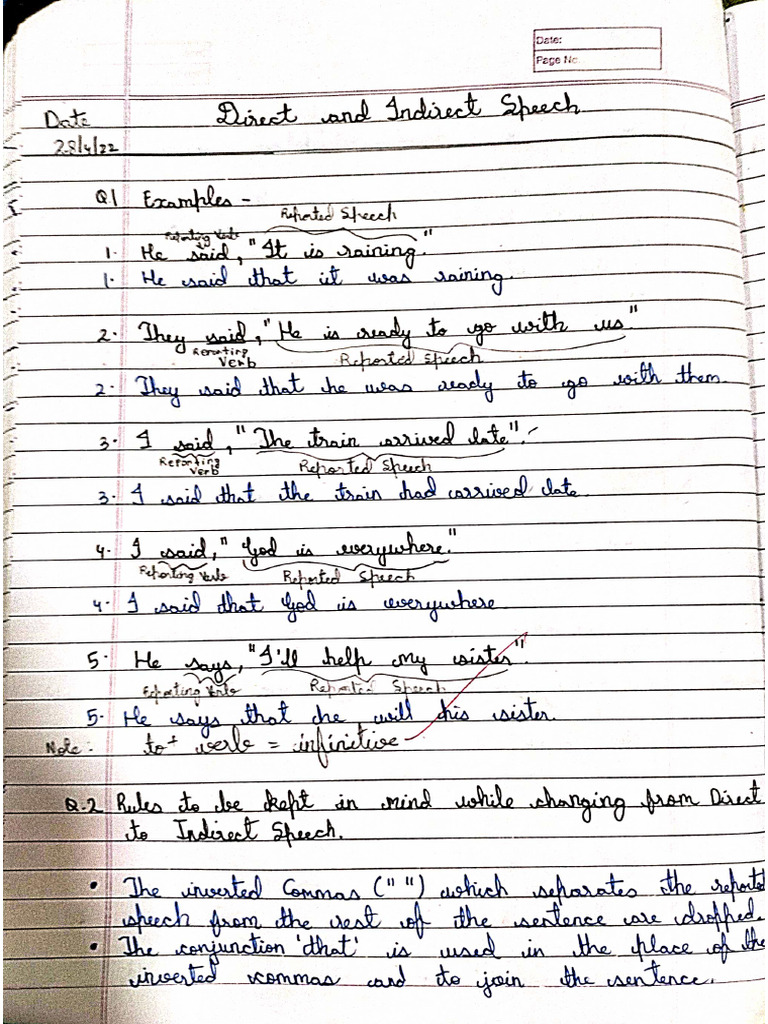 Date:
Page No.
Date Direct and Indirect Speech
28/4/22
Q1 Examples -
Reported Speech
Reporting Verb
1. He said, "It is raining."
1. He said that it was raining.
2. They said, "He is ready to go with us"
Reporting Verb Reported Speech
2. They said that he was ready to go with them.
3. I said, "The train arrived late".
Reporting Verb Reported Speech
3. I said that the train had arrived late.
4. I said, "God is everywhere."
Reporting Verb Reported Speech
4. I said that God is everywhere
5. He says, "I'll help my sister".
Reporting Verb Reported Speech
5. He says that he will his sister.
Note: to + verb = infinitive
Q.2 Rules to be kept in mind while changing from Direct
to Indirect Speech.
• The inverted Commas (" ") which separates the reported
speech from the rest of the sentence are dropped.
• The conjunction 'that' is used in the place of the
inverted commas and to join the sentence.